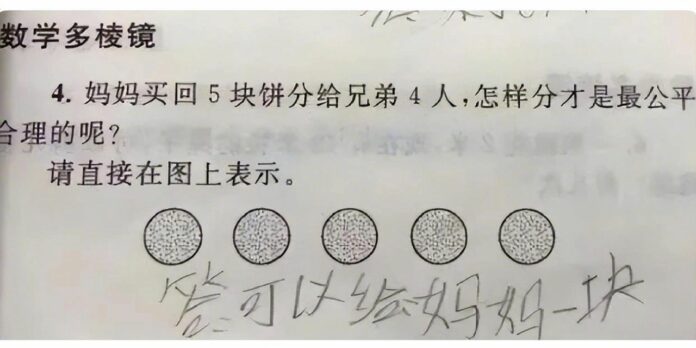 数学多棱镜
4. 妈妈买回 5 块饼分给兄弟 4 人,怎样分才是最公平
合理的呢?
请直接在图上表示。
答:可以给妈妈一块